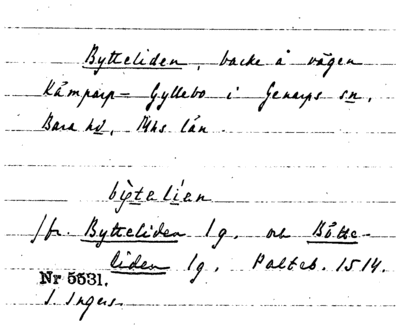 Bytteliden, backe å vägen
Kåmparp - Gyllebo i Genarps sn,
Bara hd, Mhs. län.
bỳtelíen
jfr. Bytteliden 1 g. och Bötte-
liden 1 g. Palteb. 1514.
Nr 5531.
I. Ingers.